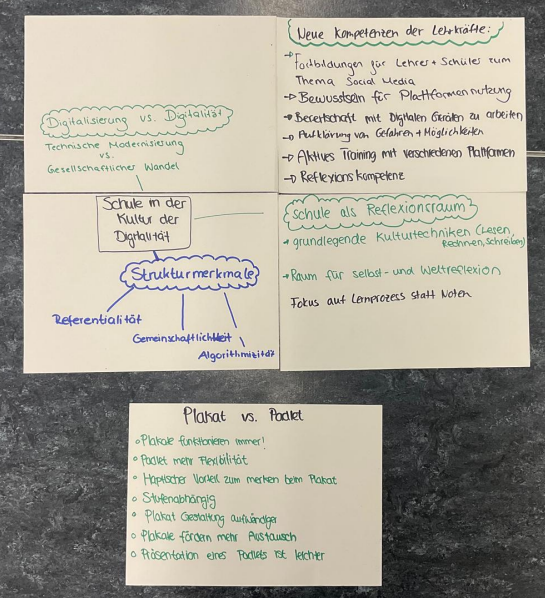 Digitalisierung vs. Digitalität
Technische Modernisierung
vs.
Gesellschaftlicher Wandel
Neue Kompetenzen der Lehrkräfte:
→ Fortbildungen für Lehrer + Schüler zum
Thema Social Media
→ Bewusstsein für Plattformennutzung
→ Bereitschaft mit Digitalen Geräten zu arbeiten
→ Aufklärung von Gefahren + Möglichkeiten
→ Aktives Training mit verschiedenen Plattformen
→ Reflexionskompetenz
Schule in der
Kultur der
Digitalität
Strukturmerkmale
Referentialität
Gemeinschaftlichkeit
Algorithmizität
Schule als Reflexionsraum
→ grundlegende Kulturtechniken (Lesen,
Rechnen, Schreiben)
→ Raum für selbst- und Weltreflexion
Fokus auf Lernprozess statt Noten
Plakat vs. Padlet
Plakate funktionieren immer!
Padlet mehr Flexibilität
Haptischer Vorteil zum merken beim Plakat
Stufenabhängig
Plakat Gestaltung aufwändiger
Plakate fördern mehr Austausch
Präsentation eines Padlets ist leichter